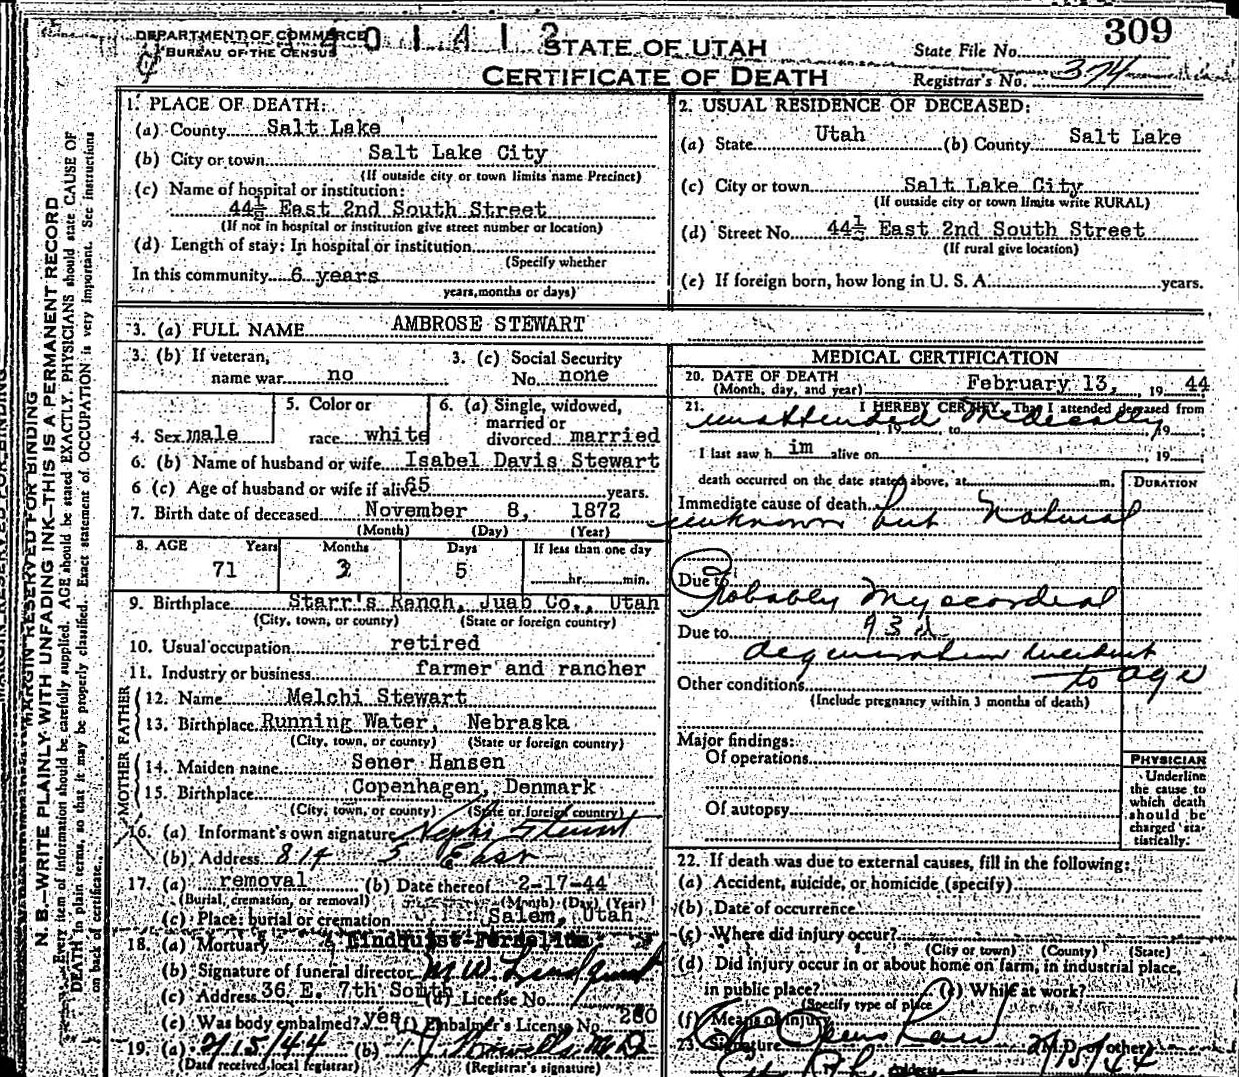 309
DEPARTMENT OF COMMERCE
BUREAU OF THE CENSUS
STATE OF UTAH
CERTIFICATE OF DEATH
State File No.
Registrar's No. 374
MARGIN RESERVED FOR BINDING
N. B.—WRITE PLAINLY WITH UNFADING INK—THIS IS A PERMANENT RECORD
Every item of information should be carefully supplied. AGE should be stated EXACTLY. PHYSICIANS should state CAUSE OF
DEATH in plain terms, so that it may be properly classified. Exact statement of OCCUPATION is very important. See instructions
on back of certificate.
1. PLACE OF DEATH:
(a) County Salt Lake
(b) City or town Salt Lake City
(If outside city or town limits name Precinct)
(c) Name of hospital or institution:
44½ East 2nd South Street
(If not in hospital or institution give street number or location)
(d) Length of stay: In hospital or institution
(Specify whether
In this community 6 years
years, months or days)
2. USUAL RESIDENCE OF DECEASED:
(a) State Utah (b) County Salt Lake
(c) City or town Salt Lake City
(If outside city or town limits write RURAL)
(d) Street No. 44½ East 2nd South Street
(If rural give location)
(e) If foreign born, how long in U. S. A. years.
3. (a) FULL NAME AMBROSE STEWART
3. (b) If veteran, name war no
3. (c) Social Security No. none
4. Sex male
5. Color or race white
6. (a) Single, widowed, married or divorced married
6. (b) Name of husband or wife Isabel Davis Stewart
6 (c) Age of husband or wife if alive 65 years.
7. Birth date of deceased November 8, 1872
(Month) (Day) (Year)
8. AGE Years Months Days If less than one day
71 3 5 hr. min.
9. Birthplace Starr's Ranch, Juab Co., Utah
(City, town, or county) (State or foreign country)
10. Usual occupation retired
11. Industry or business farmer and rancher
FATHER
12. Name Melchi Stewart
13. Birthplace Running Water, Nebraska
(City, town, or county) (State or foreign country)
MOTHER
14. Maiden name Sener Hansen
15. Birthplace Copenhagen, Denmark
(City, town, or county) (State or foreign country)
16. (a) Informant's own signature Nephi Stewart
(b) Address 814 5 East
17. (a) removal (b) Date thereof 2-17-44
(Burial, cremation, or removal) (Month) (Day) (Year)
(c) Place: burial or cremation Salem, Utah
18. (a) Mortuary
(b) Signature of funeral director M W. Lindquist
(c) Address 36 E. 7th South (d) License No.
(e) Was body embalmed? yes (f) Embalmer's License No. 280
19. (a) 2/15/44 (b)
(Date received local registrar) (Registrar's signature)
MEDICAL CERTIFICATION
20. DATE OF DEATH
(Month, day, and year) February 13, 19 44
21. I HEREBY CERTIFY, That I attended deceased from
unattended medically
, 19 to , 19 ;
I last saw h im alive on , 19 ;
death occurred on the date stated above, at m.
DURATION
Immediate cause of death
unknown but Natural
Due to
Probably Myocordial
Due to 93d
degeneration incident
to age
Other conditions
(Include pregnancy within 3 months of death)
Major findings:
Of operations
Of autopsy
PHYSICIAN
Underline
the cause to
which death
should be
charged sta-
tistically.
22. If death was due to external causes, fill in the following:
(a) Accident, suicide, or homicide (specify)
(b) Date of occurrence
(c) Where did injury occur?
(City or town) (County) (State)
(d) Did injury occur in or about home on farm, in industrial place,
in public place? (e) While at work?
(Specify type of place
(f) Means of injury
23. Signature (M.D. or other) 2/15/44